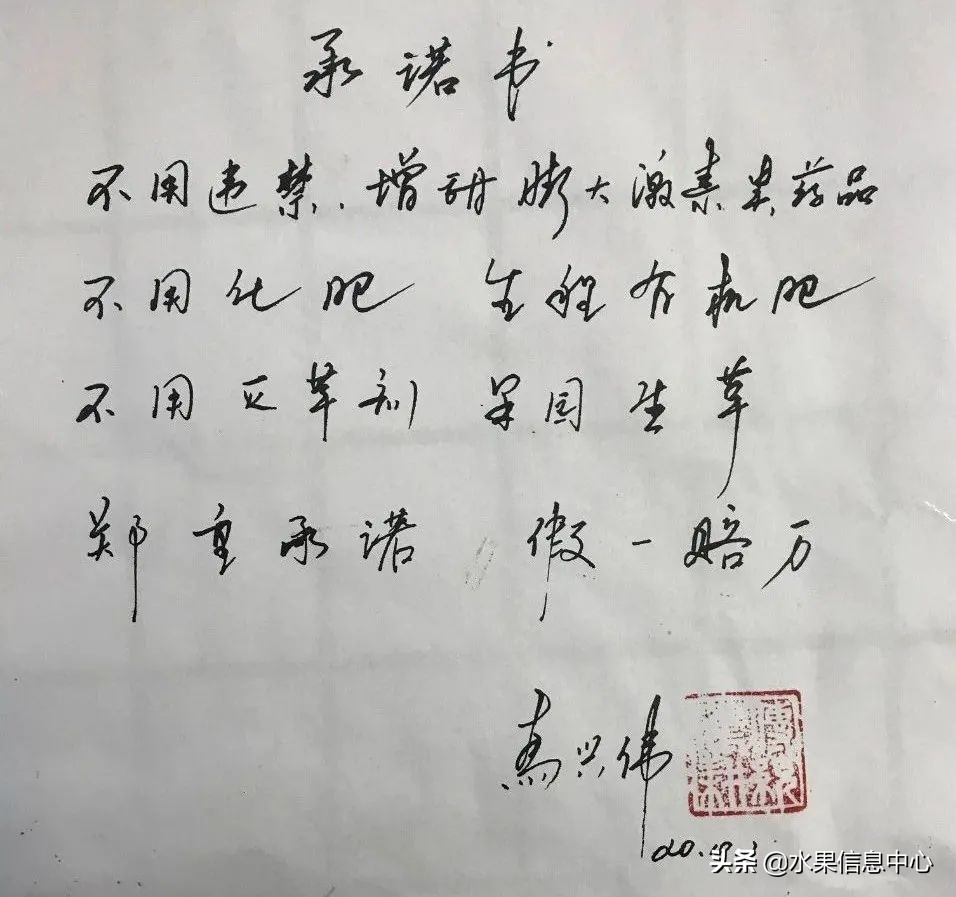 承诺书
不用违禁.增甜膨大激素类药品
不用化肥 全程有机肥
不用灭草剂 果园生草
郑重承诺 假一赔万
兴伟
头条 @水果信息中心